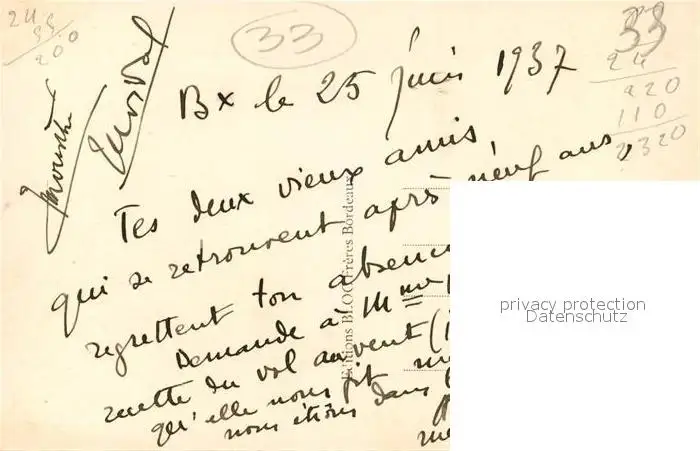 24
33
200
33
33
24
920
110
2320
Bx le 25 juin 1937
Tes deux vieux amis,
qui se retrouvent après neuf ans,
regrettent ton absenc
Demande à Mme
recette du vol au vent (
qu'elle nous fit
nous étions dans
Editions BLOC Frères Bordeaux
privacy protection
Datenschutz